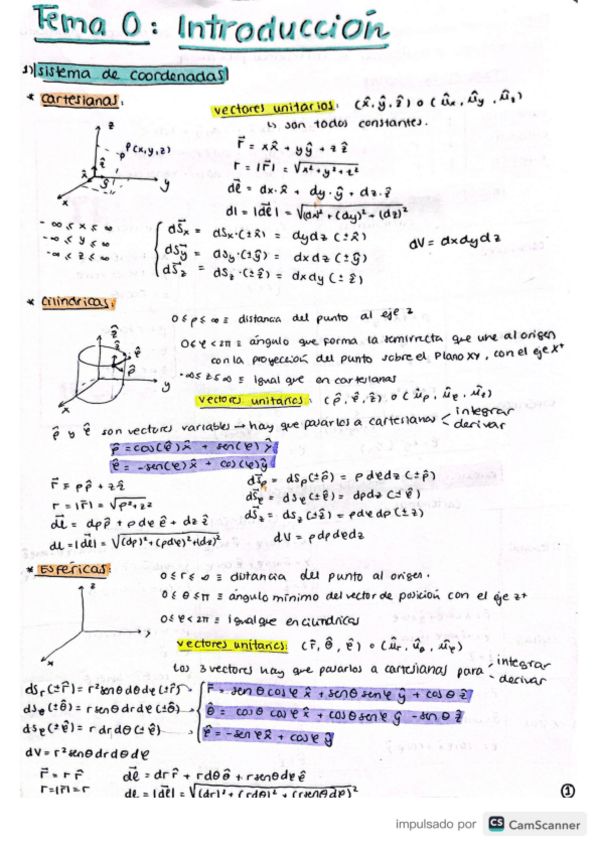 Tema 0: Introducción
1) sistema de coordenadas
* cartesianas:
vectores unitarios: (x̂, ŷ, ẑ) o (û_x, û_y, û_z)
↳ son todos constantes.
z
P(x,y,z)
y
x
r⃗ = xx̂ + yŷ + zẑ
r = |r⃗| = √(x²+y²+z²)
dl⃗ = dx·x̂ + dy·ŷ + dz·ẑ
dl = |dl⃗| = √((dx)²+(dy)²+(dz)²)
-∞ ≤ x ≤ ∞
-∞ ≤ y ≤ ∞
-∞ ≤ z ≤ ∞
dS⃗x = dSx·(±x̂) = dydz (±x̂)
dS⃗y = dSy·(±ŷ) = dxdz (±ŷ)
dS⃗z = dSz·(±ẑ) = dxdy (±ẑ)
dV = dxdydz
* cilíndricas:
0 ≤ ρ ≤ ∞ ≡ distancia del punto al eje z
0 ≤ φ < 2π ≡ ángulo que forma la semirrecta que une al origen
con la proyección del punto sobre el plano XY, con el eje X⁺
-∞ ≤ z ≤ ∞ ≡ igual que en cartesianas
z
y
x
vectores unitarios: (ρ̂, φ̂, ẑ) o (û_ρ, û_φ, û_z)
ρ̂ y φ̂ son vectores variables → hay que pasarlos a cartesianas < integrar
derivar
ρ̂ = cos(φ)x̂ + sen(φ)ŷ
φ̂ = -sen(φ)x̂ + cos(φ)ŷ
r⃗ = ρρ̂ + zẑ
r = |r⃗| = √(ρ²+z²)
dl⃗ = dρρ̂ + ρdφφ̂ + dzẑ
dl = |dl⃗| = √((dρ)²+(ρdφ)²+(dz)²)
dS⃗ρ = dSρ(±ρ̂) = ρdφdz (±ρ̂)
dS⃗φ = dSφ(±φ̂) = dρdz (±φ̂)
dS⃗z = dSz(±ẑ) = ρdφdρ (±ẑ)
dV = ρdρdφdz
* Esféricas:
0 ≤ r ≤ ∞ ≡ distancia del punto al origen.
0 ≤ θ ≤ π ≡ ángulo mínimo del vector de posición con el eje z⁺
0 ≤ φ < 2π ≡ igual que en cilíndricas
z
y
x
vectores unitarios: (r̂, θ̂, φ̂) o (û_r, û_θ, û_φ)
Los 3 vectores hay que pasarlos a cartesianas para integrar
derivar
dSr(±r̂) = r²senθdθdφ(±r̂)
dSθ(±θ̂) = rsenθdrdφ(±θ̂)
dSφ(±φ̂) = rdrdθ(±φ̂)
r̂ = senθcosφ x̂ + senθsenφ ŷ + cosθ ẑ
θ̂ = cosθcosφ x̂ + cosθsenφ ŷ - senθ ẑ
φ̂ = -senφ x̂ + cosφ ŷ
dV = r²senθdrdθdφ
r⃗ = r r̂
r = |r⃗| = r
dl⃗ = drr̂ + rdθθ̂ + rsenθdφφ̂
dl = |dl⃗| = √((dr)²+(rdθ)²+(rsenθdφ)²)
1
impulsado por CS CamScanner